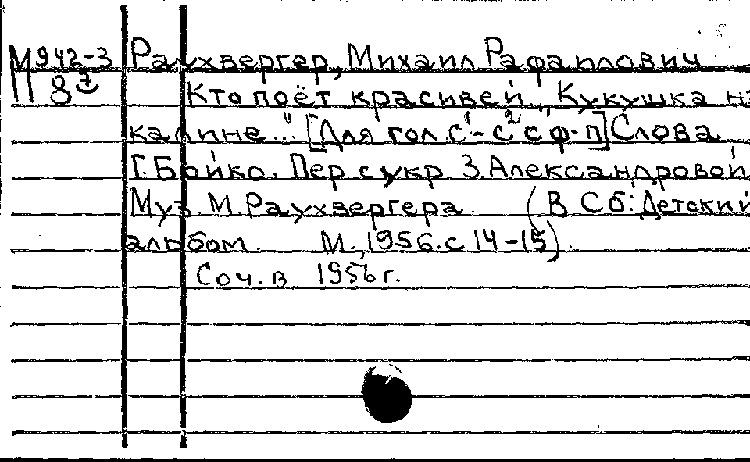 М942-3 Раухвергер, Михаил Рафаилович
8 Кто поёт красивей. "Кукушка на
калине..." [Для гол. с¹-с² с ф-п] Слова
Г. Бойко. Пер с укр. З. Александровой.
Муз. М. Раухвергера (В сб: Детский
альбом. М., 1956. с 14-15).
Соч. в 1956 г.